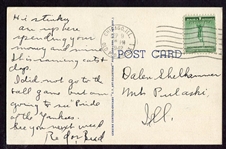 Hi stinky
am up here
spending your
money and mind
It is raining cats &
dogs.
I did not go to the
ball game but am
going to see "Pride
of the Yankees.
See you next week
Red or Bread
CHICAGO, ILL.
POST CARD
Dalen Shellhammer
Mt. Pulaski,
Ill.